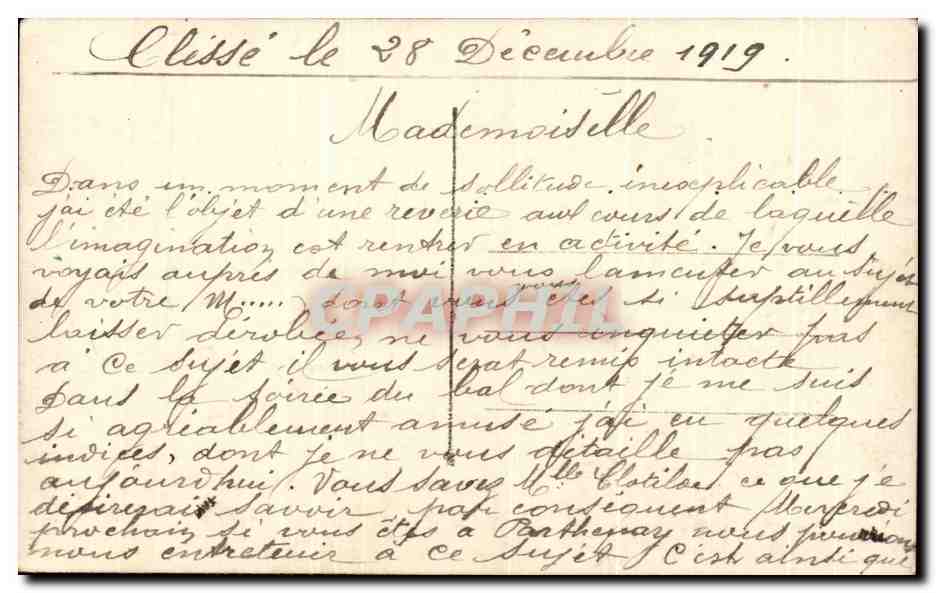 Clissé le 28 Décembre 1919.
Mademoiselle
Dans un moment de sollitude inexplicable
j'ai été l'objet d'une reverie aux cours de laquelle
l'imagination est rentrer en activité. Je vous
voyais auprés de moi vous lamenter au sujet
de votre M..... dont vous vous étes si suptillement
laisser dérobée, ne vous inquieter pas
à ce sujet il vous serat remis intacte
Dans la soirée du bal dont je me suis
si agréablement amusé j'ai eu quelques
indices, dont je ne vous détaille pas
aujourdhui. Vous savez Mlle Clotilde ce que je
désirerais savoir, par conséquent Mercredi
prochain si vous étes à Parthenay nous pourrions
nous entretenir à ce sujet, C'est ainsi que
CPAPHIL